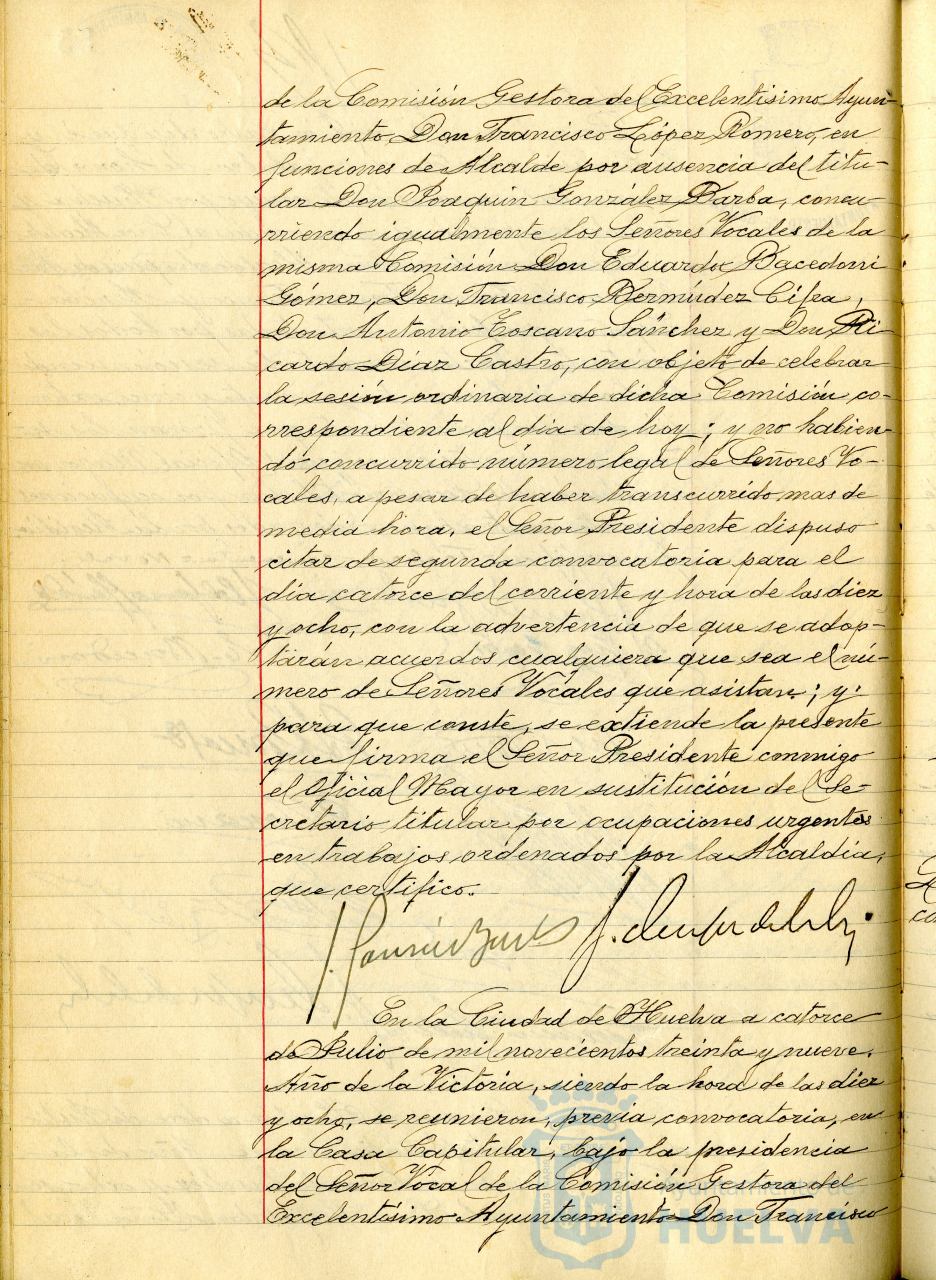 de la Comisión Gestora del Excelentísimo Ayun-
tamiento Don Francisco López Romero, en
funciones de Alcalde por ausencia del titu-
lar Don Joaquín González Barba, concu-
rriendo igualmente los Señores Vocales de la
misma Comisión Don Eduardo Bacedoni
Gómez, Don Francisco Bermúdez Cifra,
Don Antonio Toscano Sánchez y Don Ri
cardo Díaz Castro, con objeto de celebrar
la sesión ordinaria de dicha Comisión co-
rrespondiente al día de hoy; y no habien-
do concurrido número legal de Señores Vo-
cales, a pesar de haber transcurrido mas de
media hora, el Señor Presidente dispuso
citar de segunda convocatoria para el
día catorce del corriente y hora de las diez
y ocho, con la advertencia de que se adop-
tarán acuerdos cualquiera que sea el nú-
mero de Señores Vocales que asistan; y
para que conste, se extiende la presente
que firma el Señor Presidente conmigo
el Oficial Mayor en sustitución del Se-
cretario titular por ocupaciones urgentes
en trabajos ordenados por la Alcaldía,
que certifico.
En la Ciudad de Huelva a catorce
de Julio de mil novecientos treinta y nueve.
Año de la Victoria, siendo la hora de las diez
y ocho, se reunieron, previa convocatoria, en
la Casa Capitular, bajo la presidencia
del Señor Vocal de la Comisión Gestora del
Excelentísimo Ayuntamiento Don Francisco
Ayuntamiento de
HUELVA